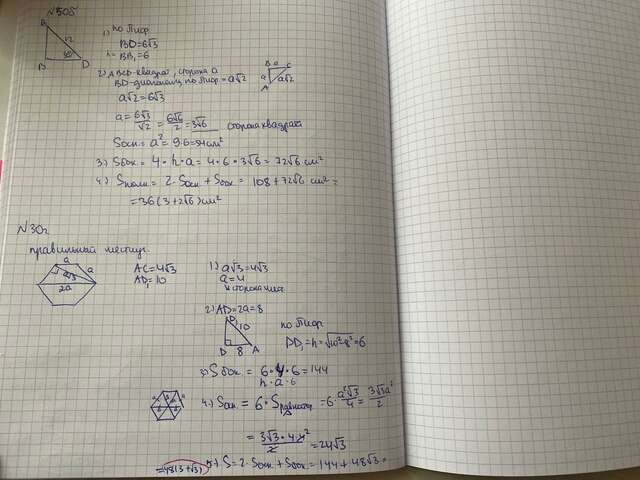 № 30б
B₁
12
30°
B
D
1) по Пиф.
BD=6√3
h= BB₁=6
2) ABCD-квадрат, сторона a
BD-диагональ, по Пиф. = a√2
B a C
a
a√2
A
a√2=6√3
a = 6√3/√2 = 6√6/2 = 3√6 сторона квадрата
Sосн = a² = 9·6=54 см²
3.) Sбок = 4 · h · a = 4 · 6 · 3√6 = 72√6 см²
4.) Sполн = 2·Sосн + Sбок = 108 + 72√6 см² =
= 36(3+2√6) см²
№30г
правильный шестиуг.
a
a
a√3
2a
AC=4√3
AD₁=10
1) a√3=4√3
a=4
сторона шест
2) AD=2a=8
D₁
10
D 8 A
по Пиф.
DD₁=h=√10²-8²=6
3) Sбок = 6·4·6=144
h·a·6
4.) Sосн = 6·Sравностор = 6· a²√3/4 = 3√3a²/2
= 3√3·4²/2 = 24√3
5.) S=2·Sосн+Sбок=144+48√3=
=48(3+√3)